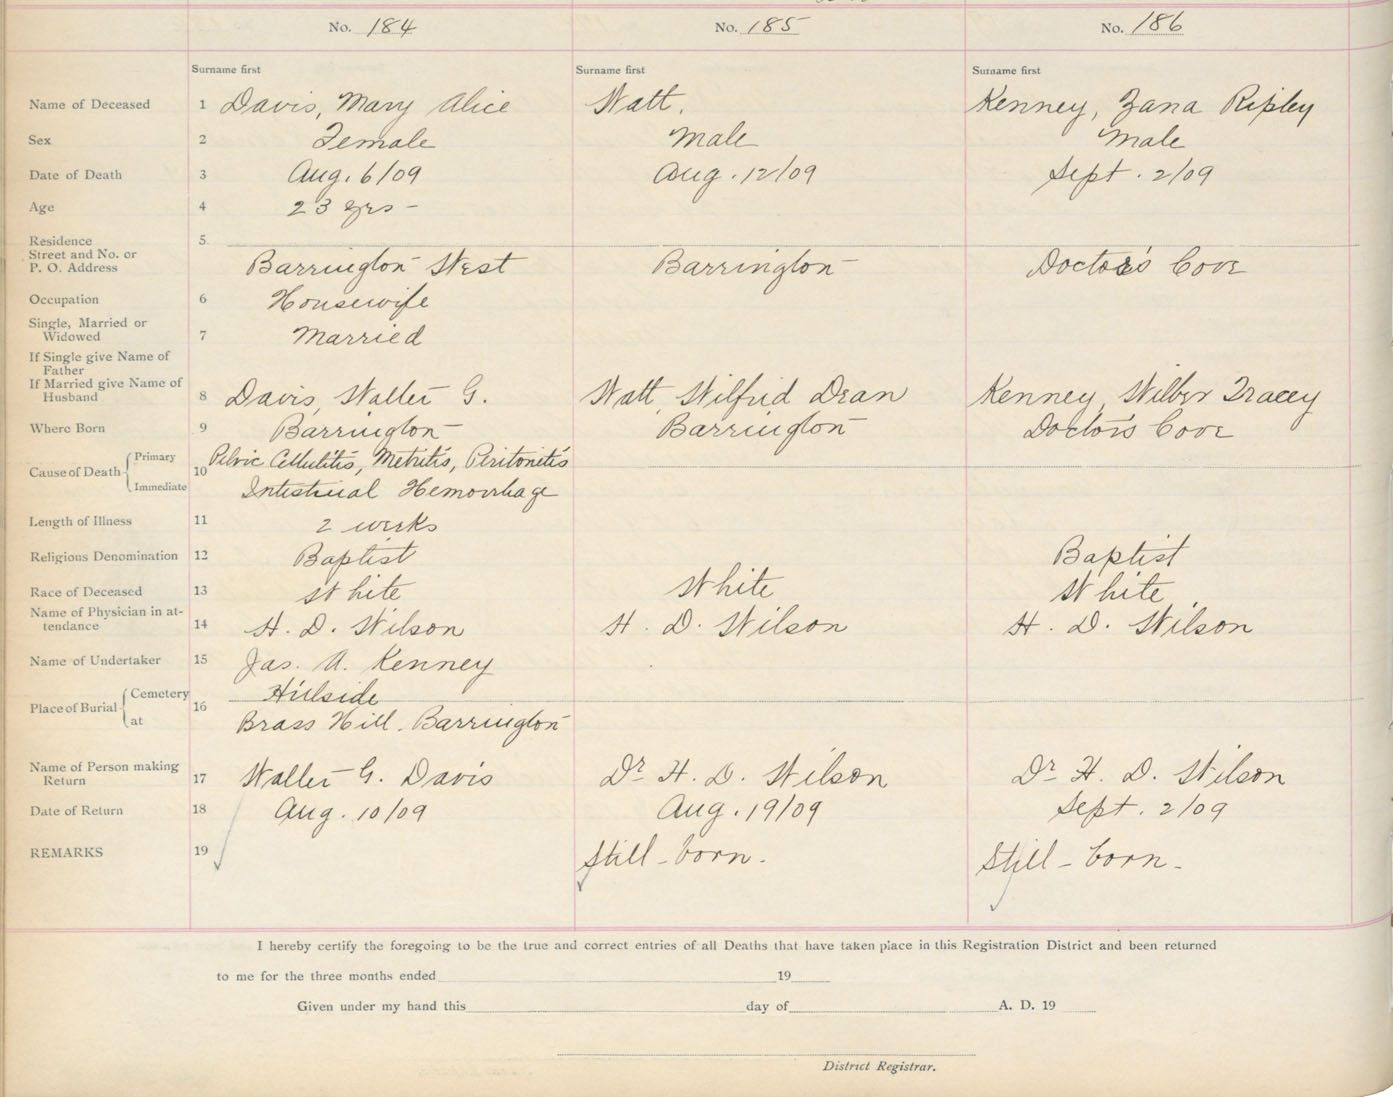 No. 184 No. 185 No. 186
Surname first Surname first Surname first
Name of Deceased 1 Davis, Mary Alice Watt, Kenney, Zana Ripley
Sex 2 Female Male Male
Date of Death 3 Aug. 6/09 Aug. 12/09 Sept. 2/09
Age 4 23 yrs -
Residence 5
Street and No. or
P. O. Address Barrington West Barrington Doctor's Cove
Occupation 6 Housewife
Single, Married or
Widowed 7 Married
If Single give Name of
Father
If Married give Name of
Husband 8 Davis, Walter G. Watt, Wilfrid Dean Kenney, Wilber Tracey
Where Born 9 Barrington Barrington Doctor's Cove
Cause of Death Primary 10 Pelvic Cellulitis, Metritis, Peritonitis
Immediate Intestinal Hemorrhage
Length of Illness 11 2 weeks
Religious Denomination 12 Baptist Baptist
Race of Deceased 13 White White White
Name of Physician in at-
tendance 14 H. D. Wilson H. D. Wilson H. D. Wilson
Name of Undertaker 15 Jas. A. Kenney
Place of Burial Cemetery 16 Hillside
at Brass Hill. Barrington
Name of Person making
Return 17 Walter G. Davis Dr H. D. Wilson Dr H. D. Wilson
Date of Return 18 Aug. 10/09 Aug. 19/09 Sept. 2/09
REMARKS 19 Still-born. Still-born.
I hereby certify the foregoing to be the true and correct entries of all Deaths that have taken place in this Registration District and been returned
to me for the three months ended 19
Given under my hand this day of A. D. 19
District Registrar.